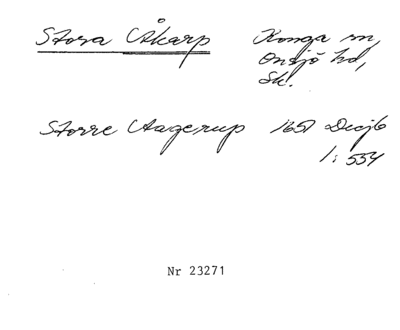 Stora Åkarp Konga sn,
Onsjö hd,
Sk.
Storre Aagerup 1651 Decjb
1: 554
Nr 23271